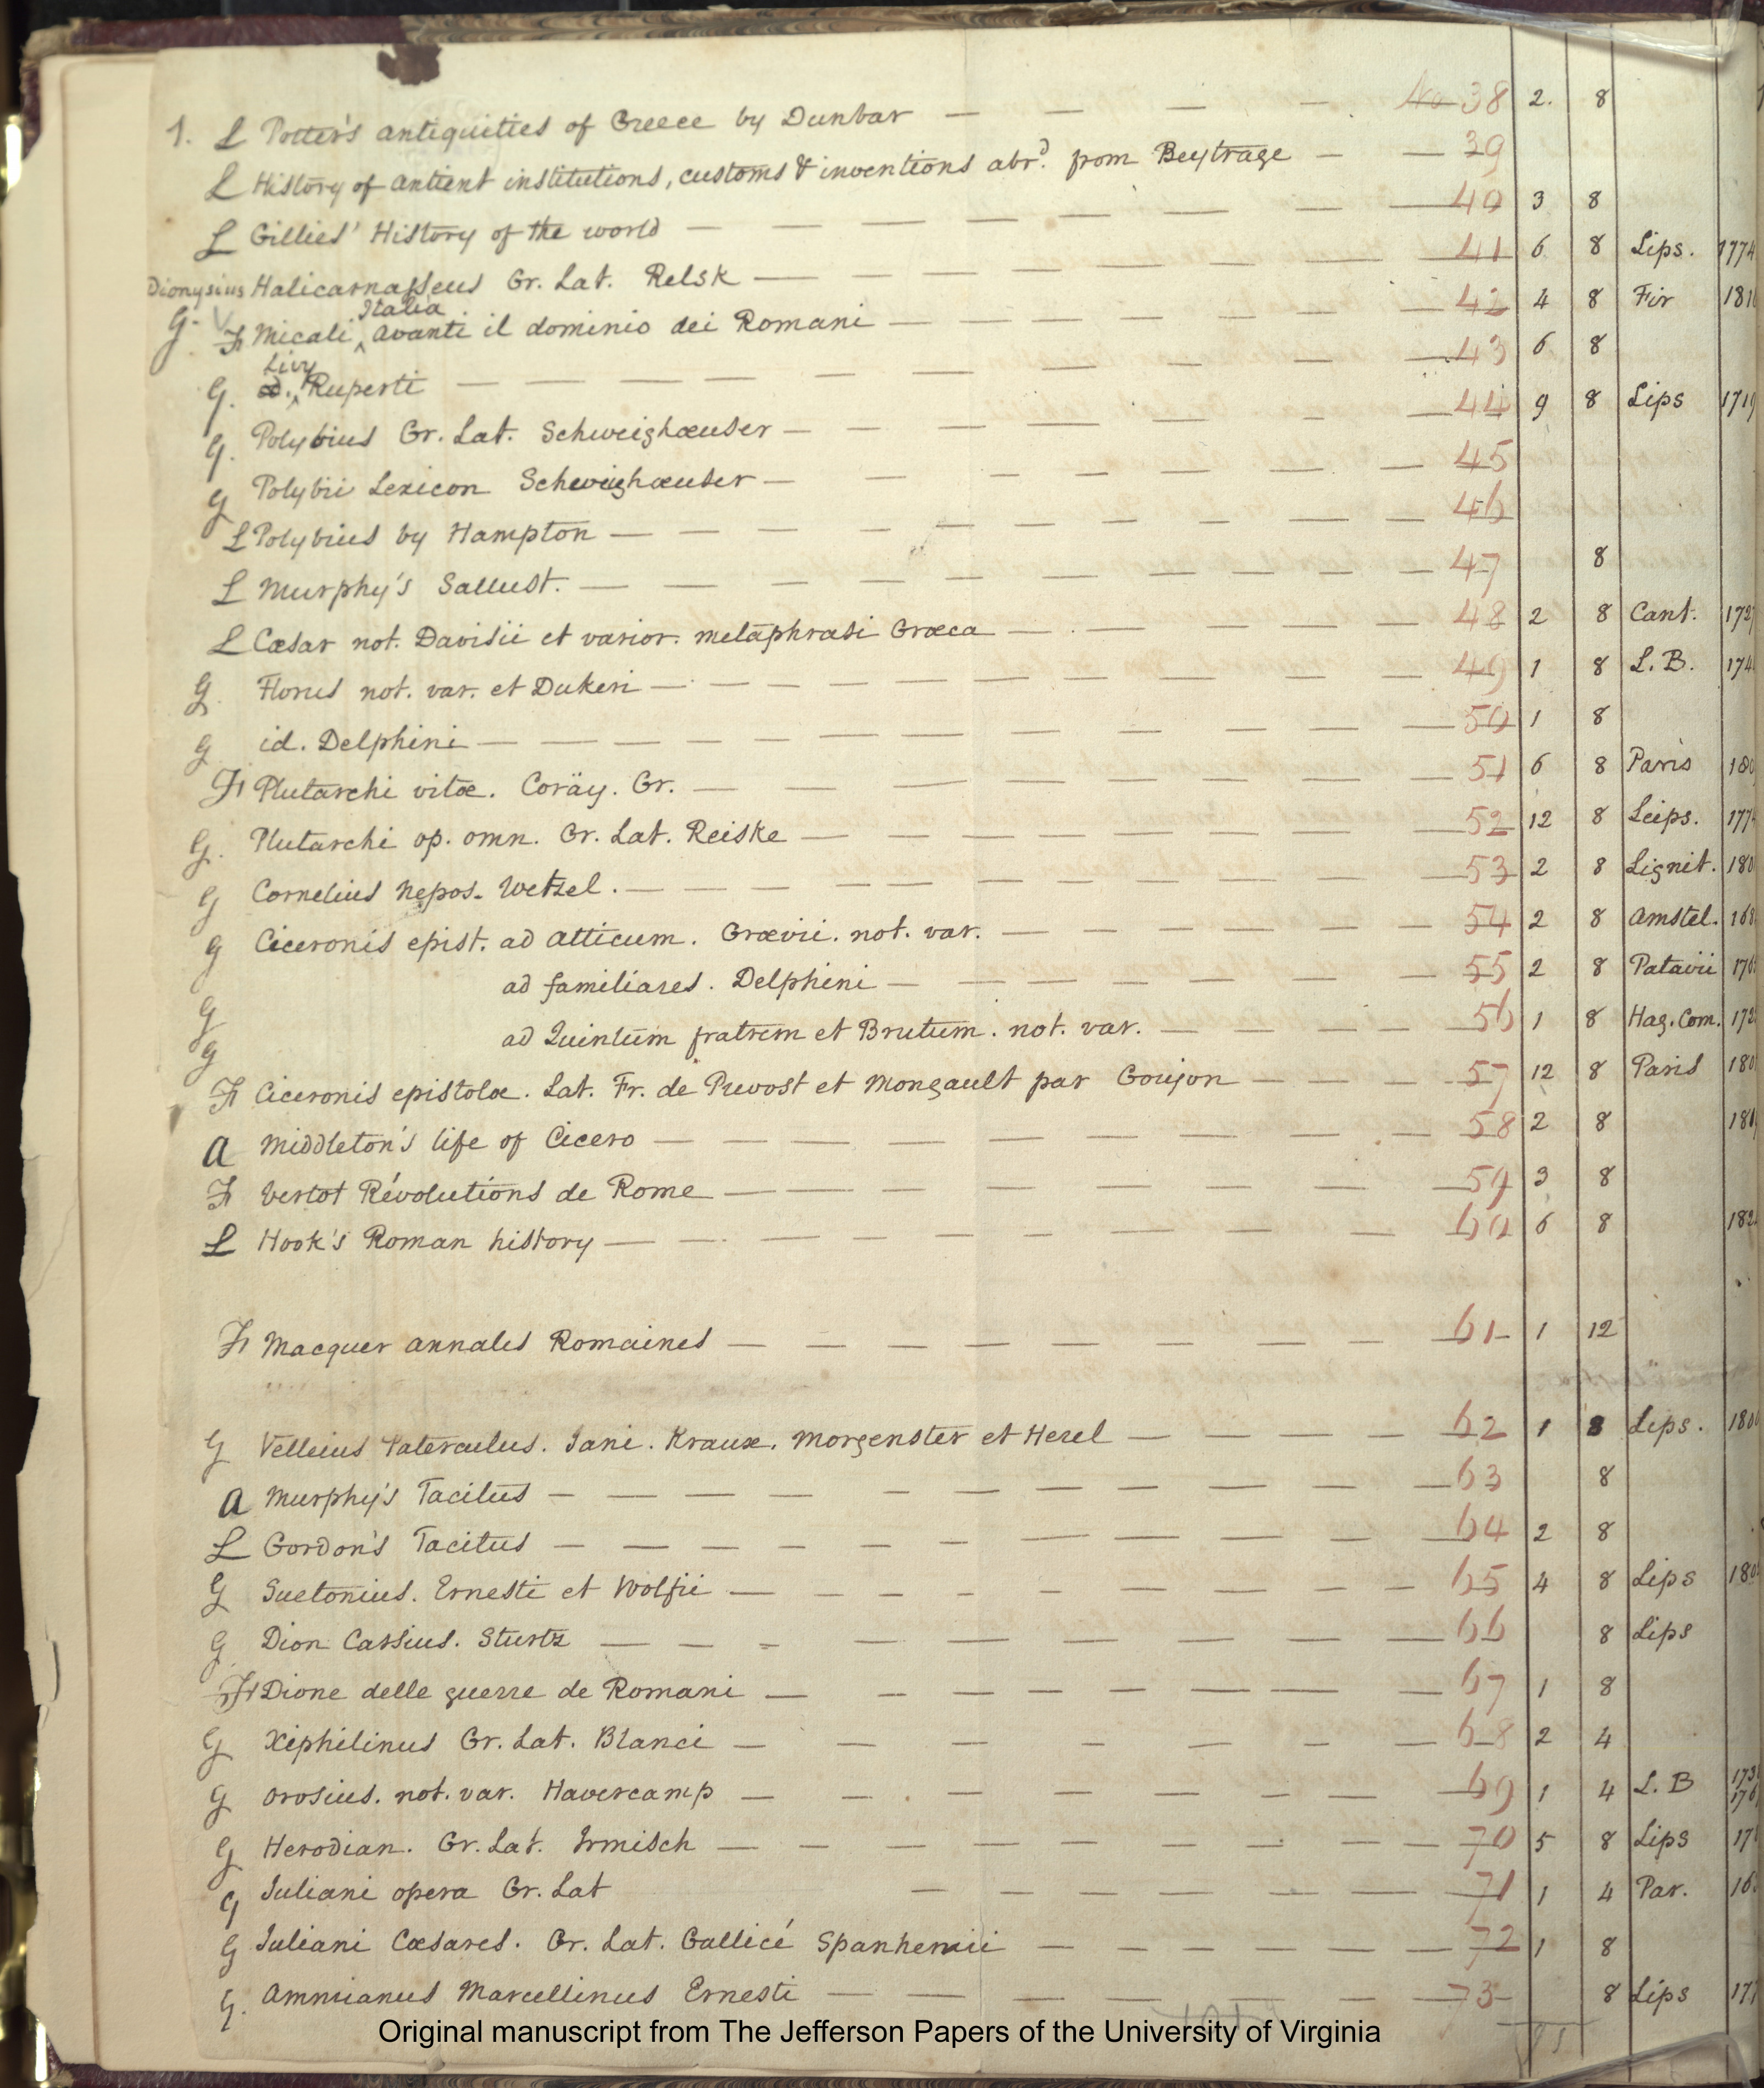 1. L Potter's antiquities of Greece by Dunbar — — — — No 38 2. 8
L History of antient institutions, customs & inventions abrd. from Beytrage — — 39
L Gillies' History of the world — — — — — — — 40 3 8
Dionysius Halicarnasseus Gr. Lat. Relsk — — — — — — — 41 6 8 Lips. 1774
Italia
G. F Micali ‸ avanti il dominio dei Romani — — — — — — — 42 4 8 Fir 181
Livy
G. ‸ Ruperti — — — — — — — — — — 43 6 8
G. Polybius Gr. Lat. Schweighæuser — — — — — — — 44 9 8 Lips 171
G Polybii Lexicon Schweighæuser — — — — — — 45
L Polybius by Hampton — — — — — — — — — 46
L Murphy's Sallust. — — — — — — — — — 47 8
L Cæsar not. Davisii et varior. metaphrasi Græca — — — — — 48 2 8 Cant. 172
G. Florus not. var. et Dukeri — — — — — — — — — 49 1 8 L. B. 174
G id. Delphini — — — — — — — — — — — 50 1 8
F Plutarchi vitæ. Coräy. Gr. — — — — — — — — 51 6 8 Paris 180
G. Plutarchi op. omn. Gr. Lat. Reiske — — — — — — — 52 12 8 Leips. 177
G Cornelius Nepos. Wetzel. — — — — — — — — — — 53 2 8 Lignit. 180
G Ciceronis epist. ad Atticum. Grævii. not. var. — — — — — — 54 2 8 Amstel. 168
G ad familiares. Delphini — — — — — — — 55 2 8 Patavii 176
G ad Quintum fratrem et Brutum. not. var. — — — — — 56 1 8 Hag. Com. 172
F Ciceronis epistolæ. Lat. Fr. de Prevost et Mongault par Goujon — — — — 57 12 8 Paris 180
A Middleton's life of Cicero — — — — — — — — — 58 2 8 181
F Vertot Révolutions de Rome — — — — — — — — 59 3 8
L Hook's Roman history — — — — — — — — — — 60 6 8 182
F Macquer annales Romaines — — — — — — — — 61 1 12
G Velleius Paterculus. Jani. Krause. Morgenster et Herel — — — — — 62 1 8 Lips. 180
A Murphy's Tacitus — — — — — — — — — — 63 8
L Gordon's Tacitus — — — — — — — — — — — 64 2 8
G Suetonius. Ernesti et Wolfii — — — — — — — — — 65 4 8 Lips 180
G Dion Cassius. Sturtz — — — — — — — — — — 66 8 Lips
F Dione delle guerre de Romani — — — — — — — — 67 1 8
G Xiphilinus Gr. Lat. Blanci — — — — — — — 68 2 4
G Orosius. not. var. Havercamp — — — — — — — — 69 1 4 L. B 173
176
G Herodian. Gr. Lat. Irmisch — — — — — — — — — 70 5 8 Lips 17
G Juliani opera Gr. Lat — — — — — — — 71 1 4 Par. 16
G Juliani Cæsares. Gr. Lat. Gallicé Spanhemii — — — — — — 72 1 8
G. Ammianus Marcellinus Ernesti — — — — — — — 73 8 Lips 17
Original manuscript from The Jefferson Papers of the University of Virginia